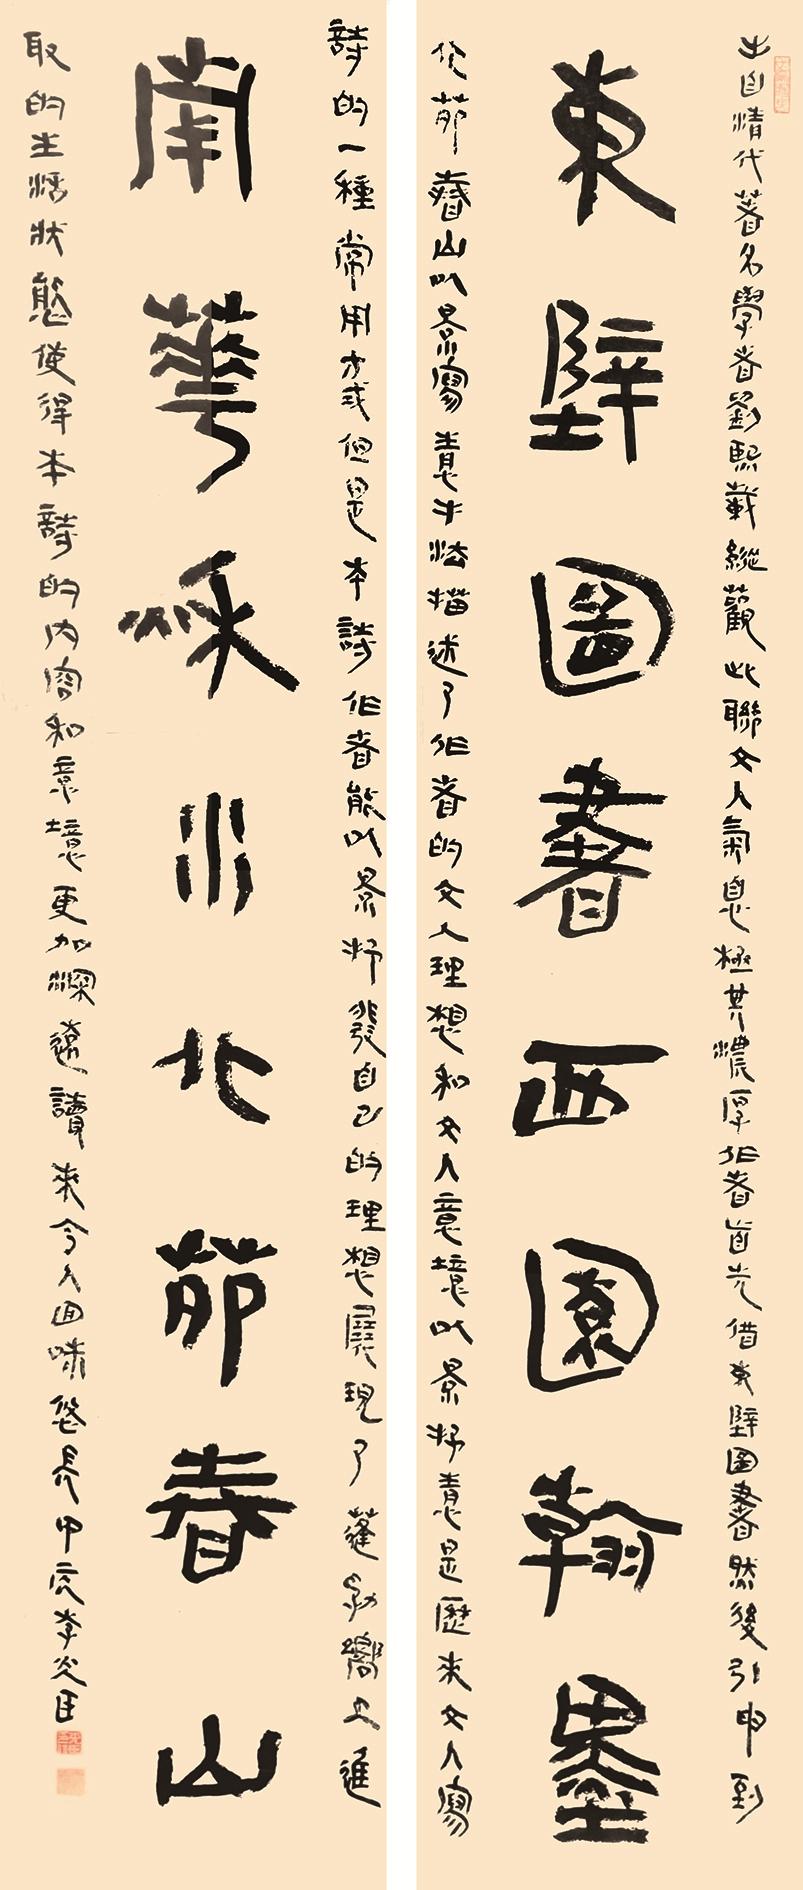 出自清代著名學者劉熙載縱觀此聯文人氣息極其濃厚作者首先借東壁圖書然後引申到
東壁圖書西園翰墨
北苑春山以景寫情手法描述了作者的文人理想和文人意境以景抒情是歷來文人寫
詩的一種常用方式但是本詩作者能以景抒發自己的理想展現了蓬勃嚮上進
南華秋水北苑春山
取的生活狀態使得本詩的内容和意境更加深遠讀來令人回味悠長甲辰李炎